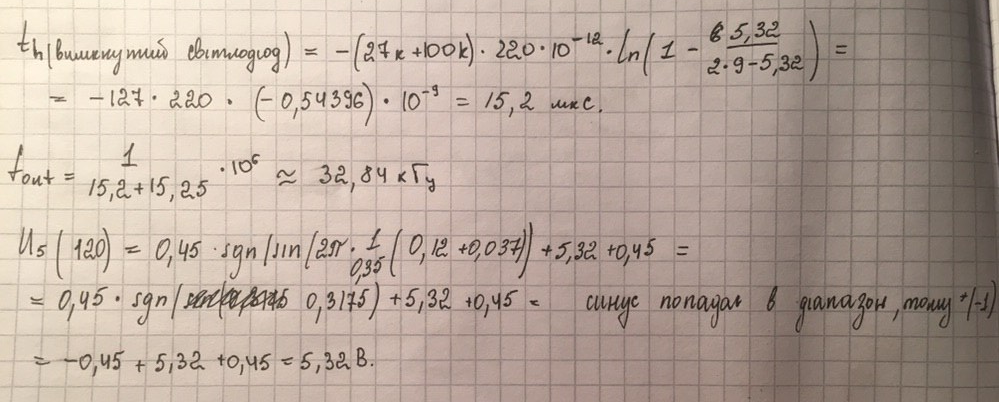 th(вимкнутий світлодіод) = -(27к+100к)·220·10⁻¹²·ln(1 - 5,32/(2·9-5,32)) =
= -127·220·(-0,54396)·10⁻⁹ = 15,2 мкс.
fout = 1/(15,2+15,25)·10⁶ ≈ 32,84 кГц
U₅(120) = 0,45·sgn(sin(2π·1/0,35(0,12+0,037))+5,32+0,45 =
= 0,45·sgn( 0,3175)+5,32+0,45 = синус попадає в діапазон, тому *(-1)
= -0,45+5,32+0,45=5,32В.